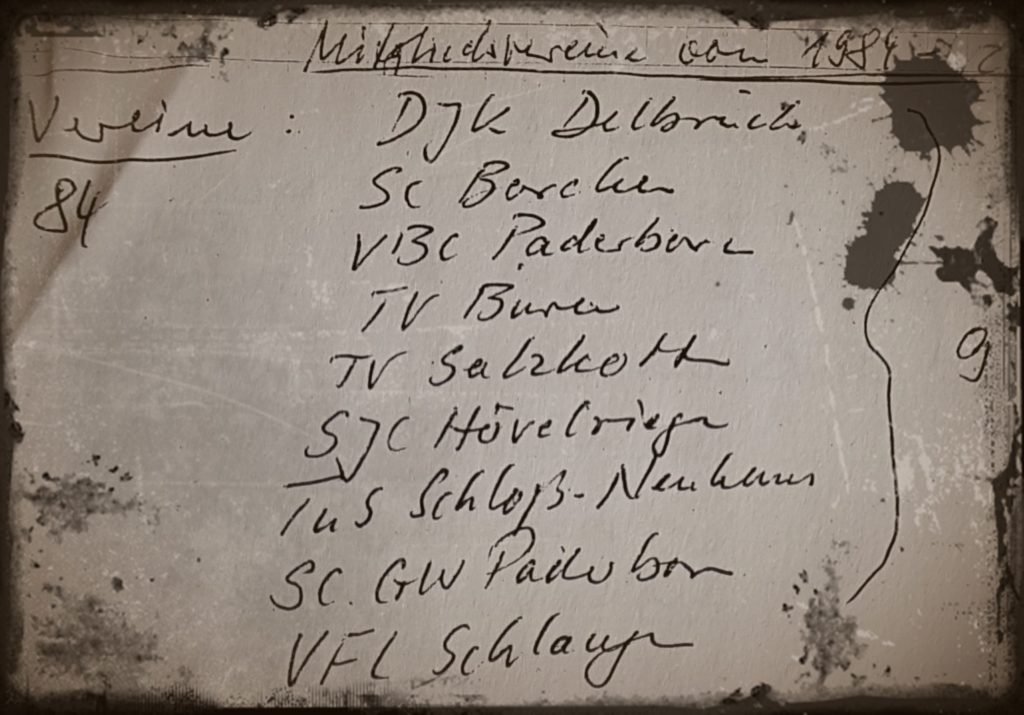 Mitgliedsvereine von 1984
Vereine : DJK Delbrück
84
SC Borchen
VBC Paderborn
TV Büren
TV Salzkotten
SJC Hövelriege
TuS Schloß-Neuhaus
9
SC. GW Paderborn
VFL Schlangen